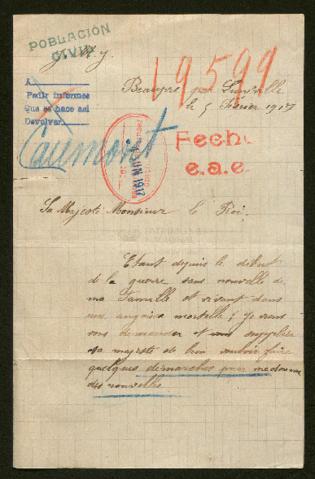 POBLACIÓN
CIVIL
J. M. J
19599
A
Pedir informes
Que se hace así
Devolver
Caumont
Beaupré par Lunéville
le 5 Février 1917
JUN 1917
Fecho
e.a.e.
Sa Majesté Monsieur le Roi,
Etant depuis le début
de la guerre sans nouvelle de
ma Famille et vivant dans
une angoisse mortelle; je viens
vous demander et vous supplier
sa majesté de bien vouloir faire
quelques démarches pour me donner
des nouvelles